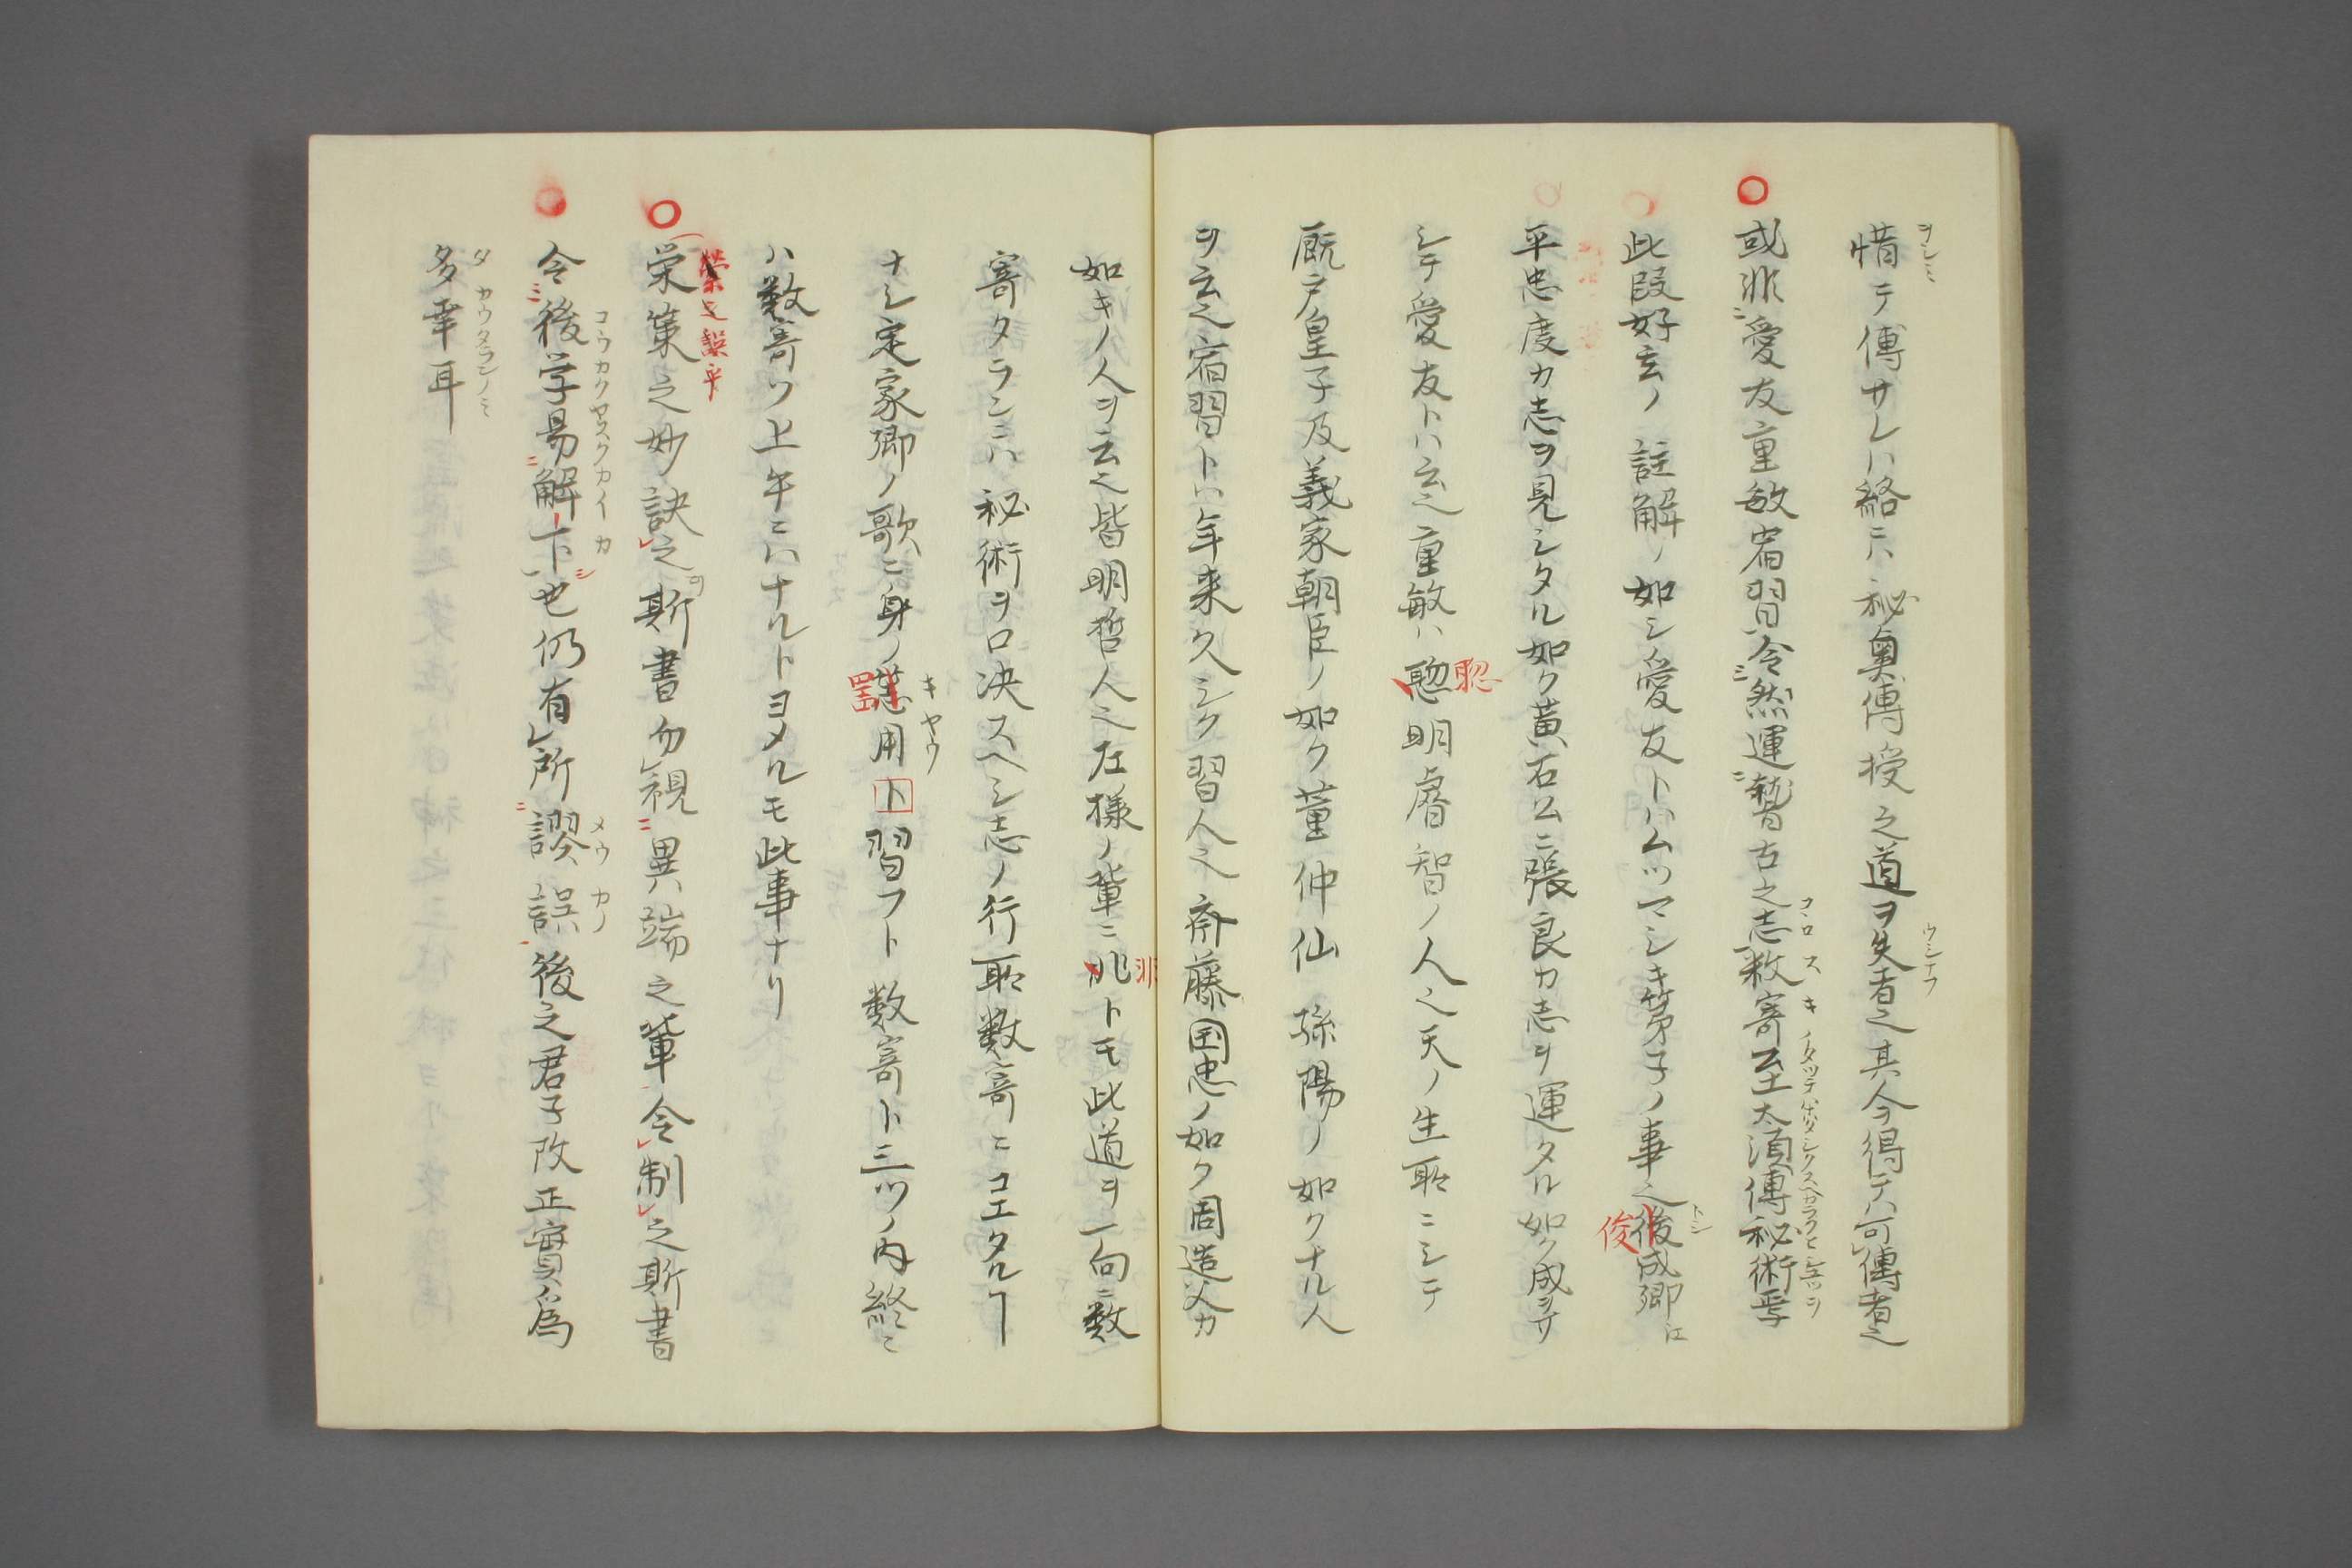 惜テ傳サレハ絡ニハ秘奥傳授之道ヲ失者之其人ヲ得テハ可傳者之
或非愛友重敏宿習令然運誓古之志数寄至太須傳秘術乎
此段好玄ノ註解ノ如シ愛友トハムツマシキ第子ノ事之後成卿江
平忠度カ志ヲ見シタル如ク黄石公ニ張良カ志ヲ運タル如ク成ヲサ
シテ愛友トハ云之重敏ハ聡明睿智ノ人之天ノ生聡ニシテ
厩戸皇子及義家朝臣ノ如ク董仲仙孫陽ノ如クナル人
ヲ云之宿習トハ年来久シク習人之斉藤国忠ノ如ク周造父カ
如キノ人ヲ云之皆明哲人之左様ノ輩ニ非トモ此道ヲ一向ニ数
寄タランニハ秘術ヲ口决スヘシ志ノ行耴数寄ニコエタルヿ
ナシ定家卿ノ歌ニ身ノ用ト習フト数寄ト三ツノ内終ニ
ハ数寄ソ上午ニハナルトヨメルモ此事ナリ
栄策之妙訣之斯書勿視異端之輩令制之斯書
令後学易解卞也仍有所謬誤後之君子改正實為
多幸耳